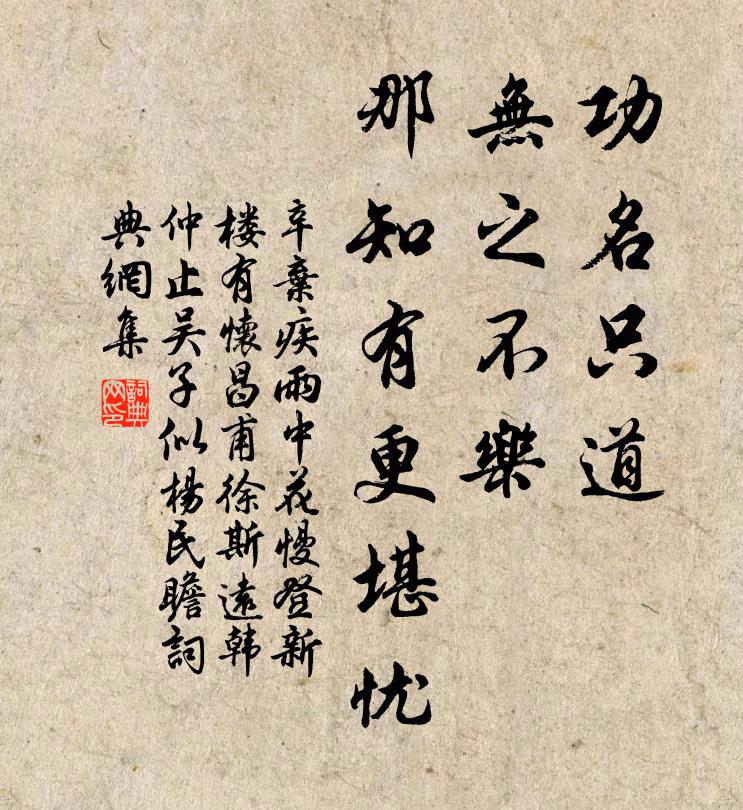 功名只道
無之不樂
那知有更堪忧
辛棄疾雨中花慢登新
楼有懷昌甫徐斯遠韩
仲止吴子似楊民瞻詞
典網集
詞典
网印